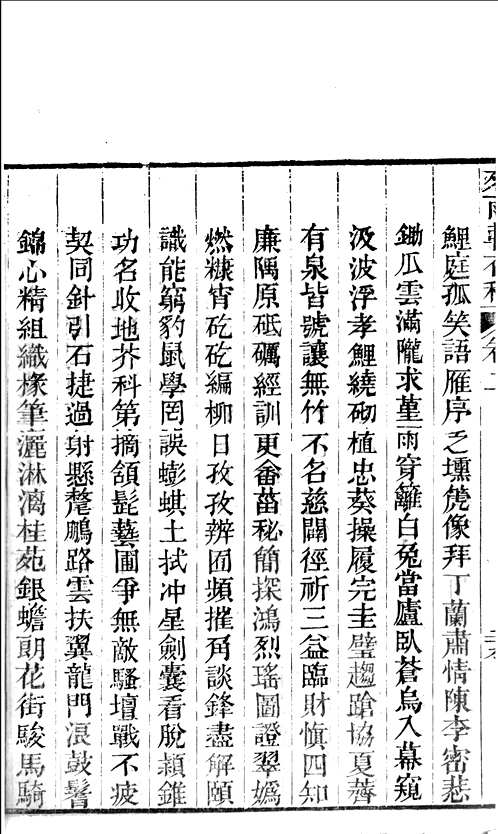 鯉庭孤笑語雁序乏壎箎像拜丁蘭肅情陳李密悲
鋤瓜雲滿隴求堇雨穿籬白兔當廬臥蒼烏入幕窺
汲波浮孝鯉繞砌植忠葵操履完圭璧趨蹌協夏薺
有泉皆號讓無竹不名慈闢徑祈三益臨財慎四知
廉隅原砥礪經訓更畬菑秘簡探鴻烈瑤圖證翠媯
燃糠宵矻矻編柳日孜孜辨囿頻摧角談鋒盡解頤
識能窮豹鼠學罔誤蟛蜞土拭冲星劍囊看脫穎錐
功名收地芥科第摘頷髭藝圃爭無敵騷壇戰不疲
契同針引石捷過射懸氂鵬路雲扶翼龍門浪鼓鬐
錦心精組織椽筆灑淋漓桂苑銀蟾朗花街駿馬騎